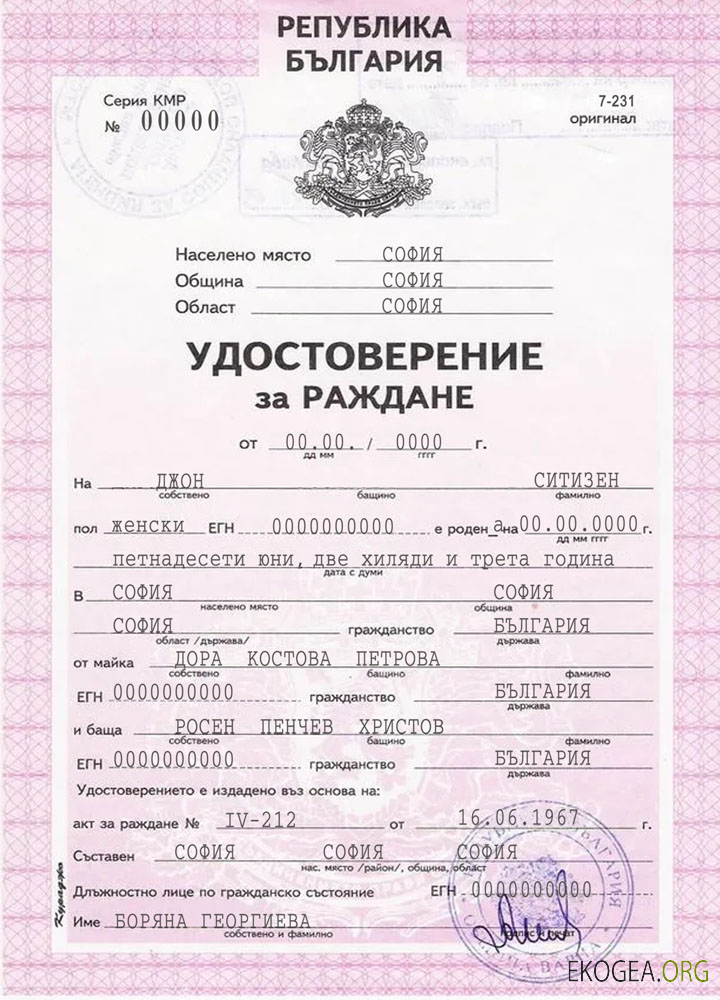 РЕПУБЛИКА
БЪЛГАРИЯ
Серия КМР
№ 00000
7-231
оригинал
Населено място СОФИЯ
Община СОФИЯ
Област СОФИЯ
УДОСТОВЕРЕНИЕ
за РАЖДАНЕ
от 00.00. / 0000 г.
дд мм гггг
На ДЖОН СИТИЗЕН
собствено бащино фамилно
пол женски ЕГН 0000000000 е роден а на 00.00.0000 г.
дд мм гггг
петнадесети юни, две хиляди и трета година
дата с думи
в СОФИЯ СОФИЯ
населено място община
СОФИЯ гражданство БЪЛГАРИЯ
област /държава/ държава
от майка ДОРА КОСТОВА ПЕТРОВА
собствено бащино фамилно
ЕГН 0000000000 гражданство БЪЛГАРИЯ
държава
и баща РОСЕН ПЕНЧЕВ ХРИСТОВ
собствено бащино фамилно
ЕГН 0000000000 гражданство БЪЛГАРИЯ
държава
Удостоверението е издадено въз основа на:
акт за раждане № IV-212 от 16.06.1967 г.
Съставен СОФИЯ СОФИЯ СОФИЯ
нас. място /район/, община, област
Длъжностно лице по гражданско състояние ЕГН 0000000000
Име БОРЯНА ГЕОРГИЕВА
собствено и фамилно
печат
EKOGEA.ORG